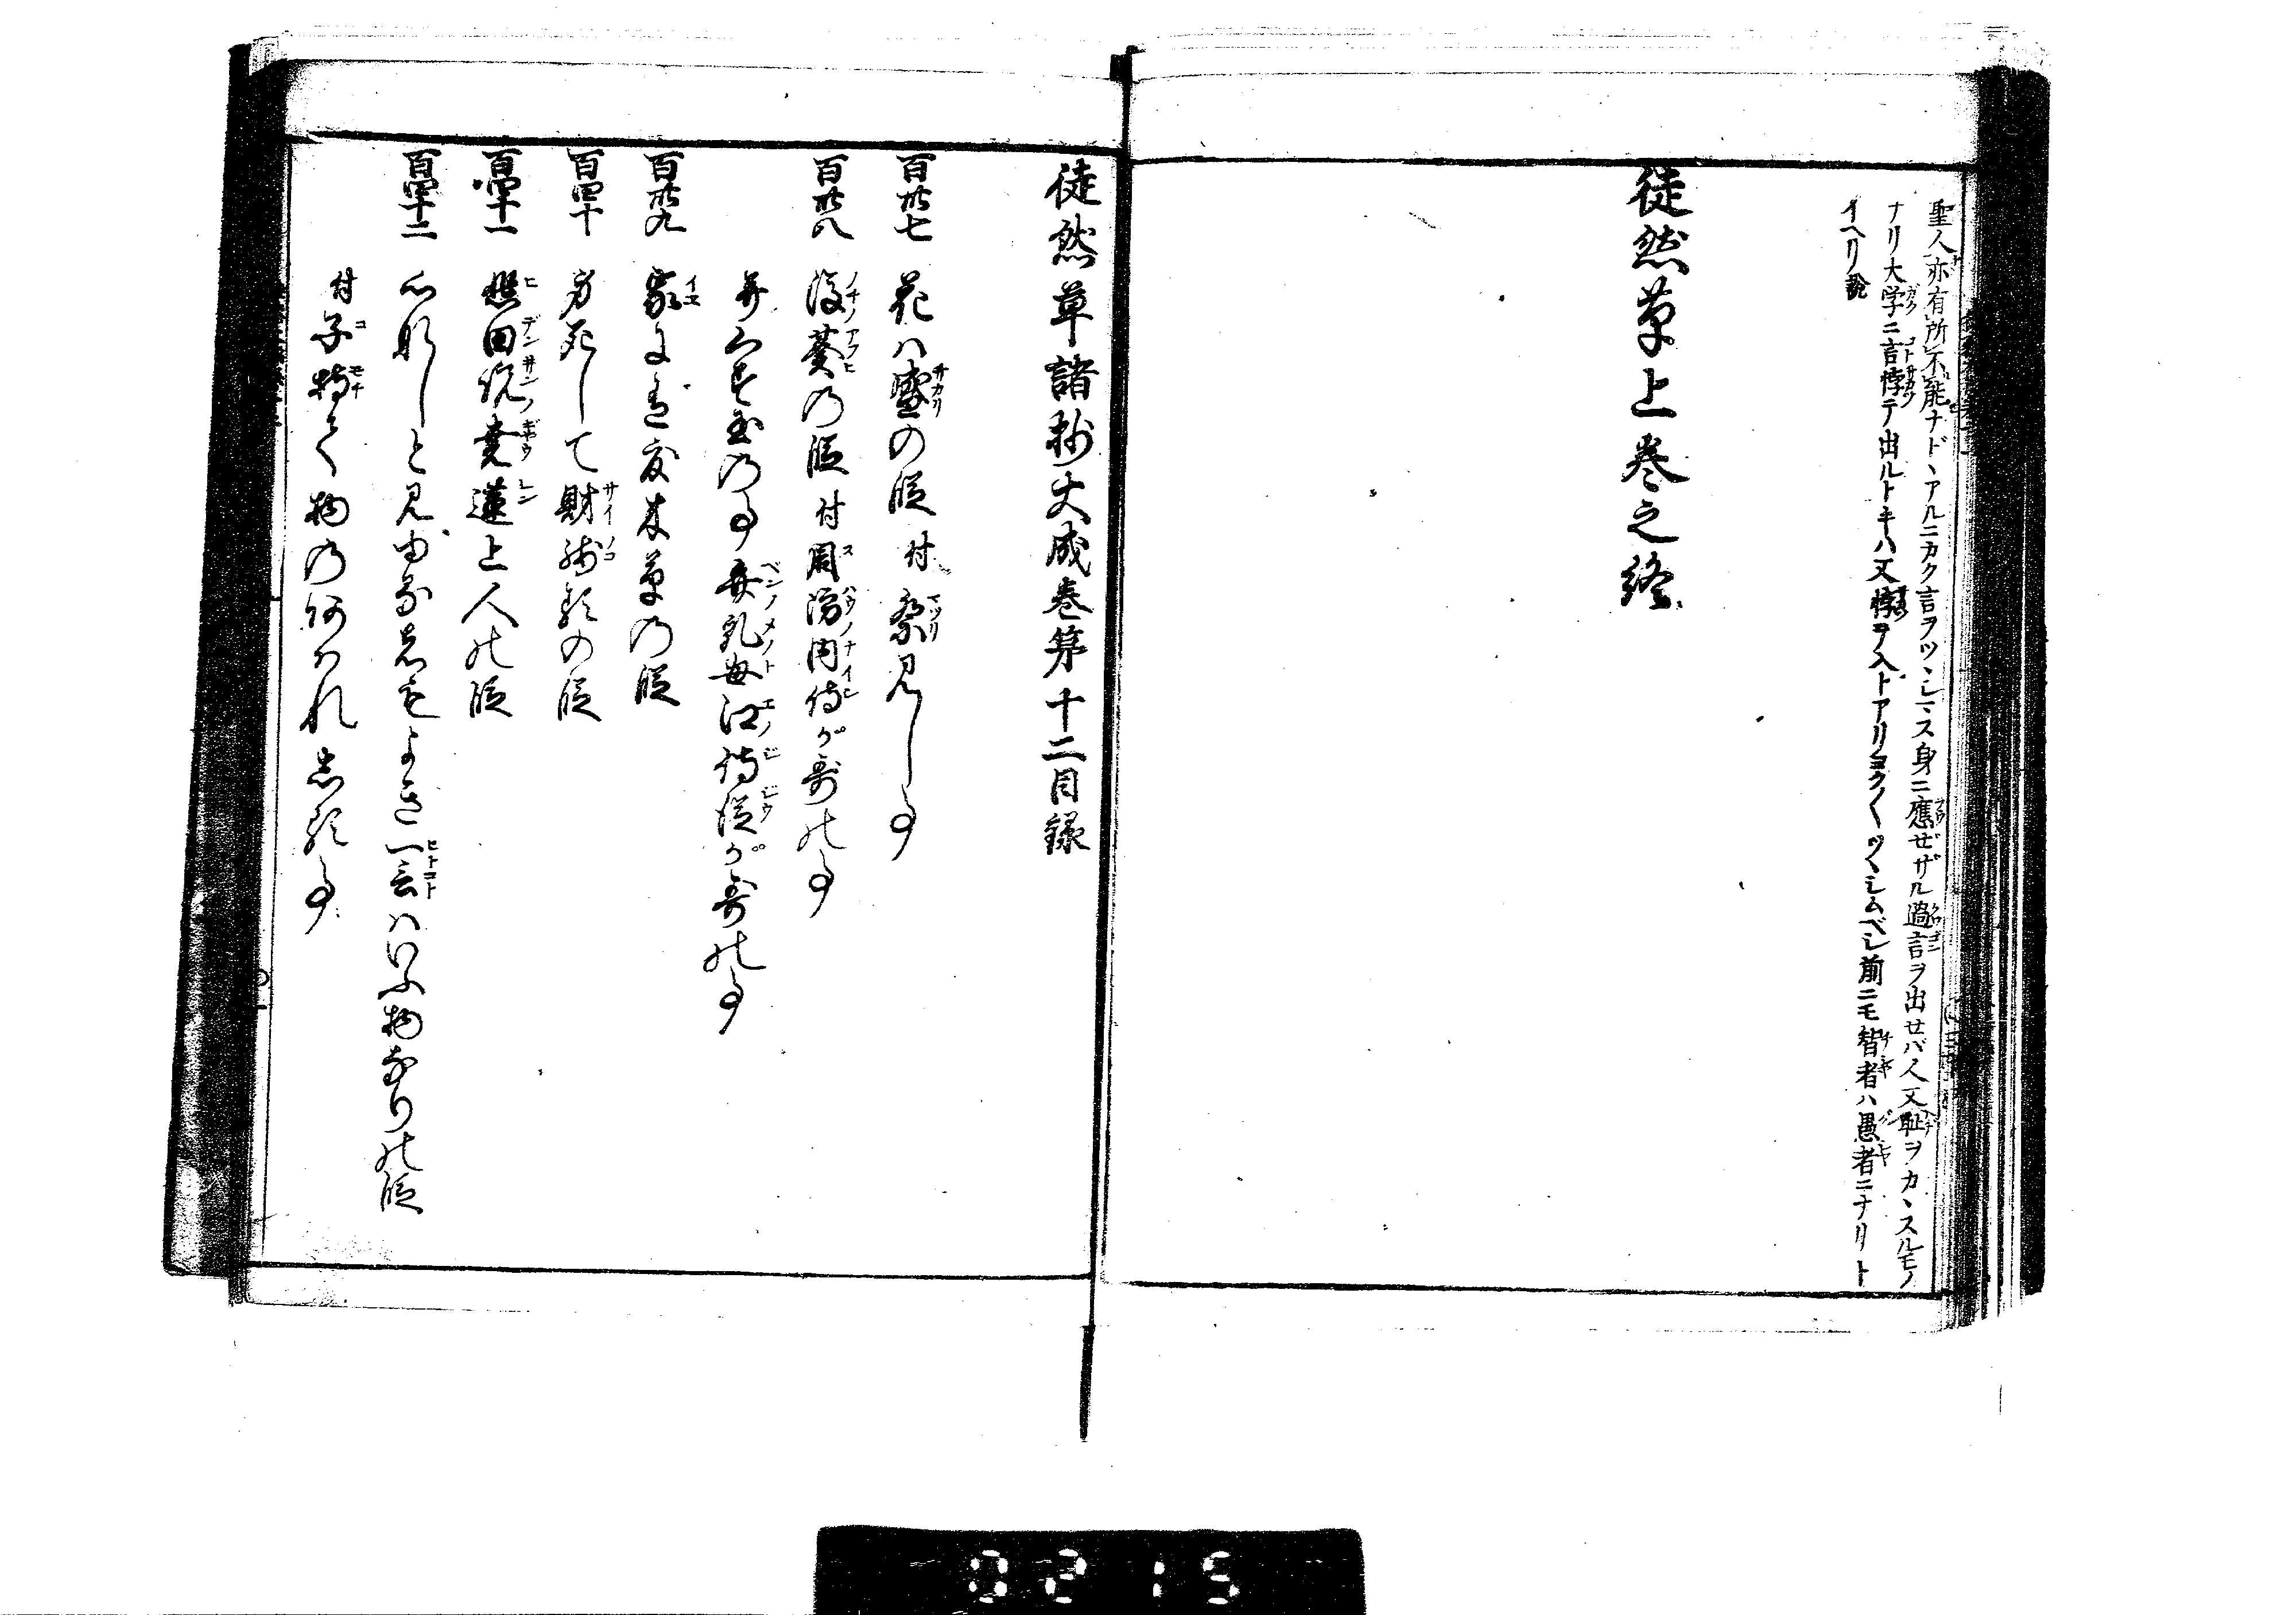 聖人亦有所不能ナドヽアルニカク言ヲツヽシマス身ニ應ゼザル過言ヲ出セバ人又耻ヲカヽスルモノ
ナリ大学ニ言悖テ出ルトキハ又悖テ入トアリヨク〱ツヽシムベシ前ニモ智者ハ愚者ニナリト
イヘリ
徒然草上巻之終
徒然草諸抄大成巻第十二目録
百卅七 花ハ盛の段 付 祭見し事
百卅八 後葵乃段 付 周防内侍が哥の事
并くす玉乃事 弁乳母江侍従が哥の事
百卅九 家にある木草乃段
百四十 身死して財残るの段
百四十一 悲田院尭蓮上人の段
百四十二 心なしと見ゆる者もよき一言ハいふ物なりの段
付 子持て物乃あはれ志る事
0215